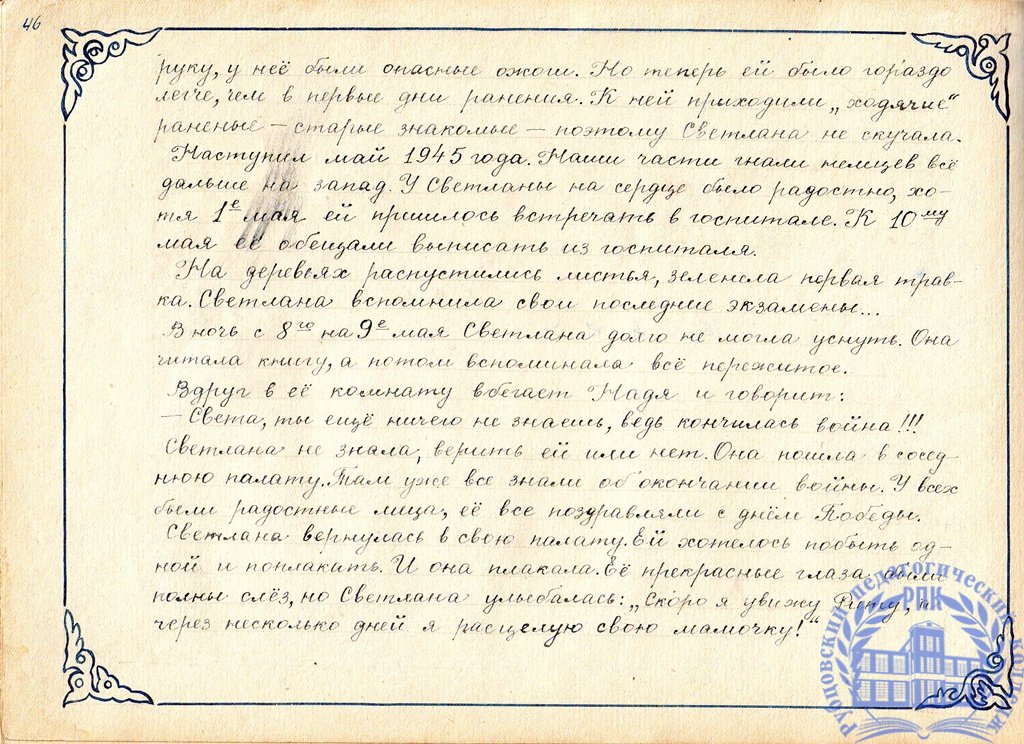 46
руку, у неё были опасные ожоги. Но теперь ей было гораздо
легче, чем в первые дни ранения. К ней приходили „ходячие“
раненые — старые знакомые — поэтому Светлана не скучала.
Наступил май 1945 года. Наши части гнали немцев всё
дальше на запад. У Светланы на сердце было радостно, хо-
тя 1е мая ей пришлось встречать в госпитале. К 10му
мая её обещали выписать из госпиталя.
На деревьях распустились листья, зеленела первая трав-
ка. Светлана вспомнила свои последние экзамены...
В ночь с 8го на 9е мая Светлана долго не могла уснуть. Она
читала книгу, а потом вспоминала всё пережитое.
Вдруг в её комнату вбегает Надя и говорит:
— Света, ты ещё ничего не знаешь, ведь кончилась война!!!
Светлана не знала, верить ей или нет. Она пошла в сосед-
нюю палату. Там уже все знали об окончании войны. У всех
были радостные лица, её все поздравляли с днём Победы.
Светлана вернулась в свою палату. Ей хотелось побыть од-
ной и поплакать. И она плакала. Её прекрасные глаза были
полны слёз, но Светлана улыбалась: „Скоро я увижу Риту, и
через несколько дней я расцелую свою мамочку!“
Рубцовский педагогический колледж
РПК